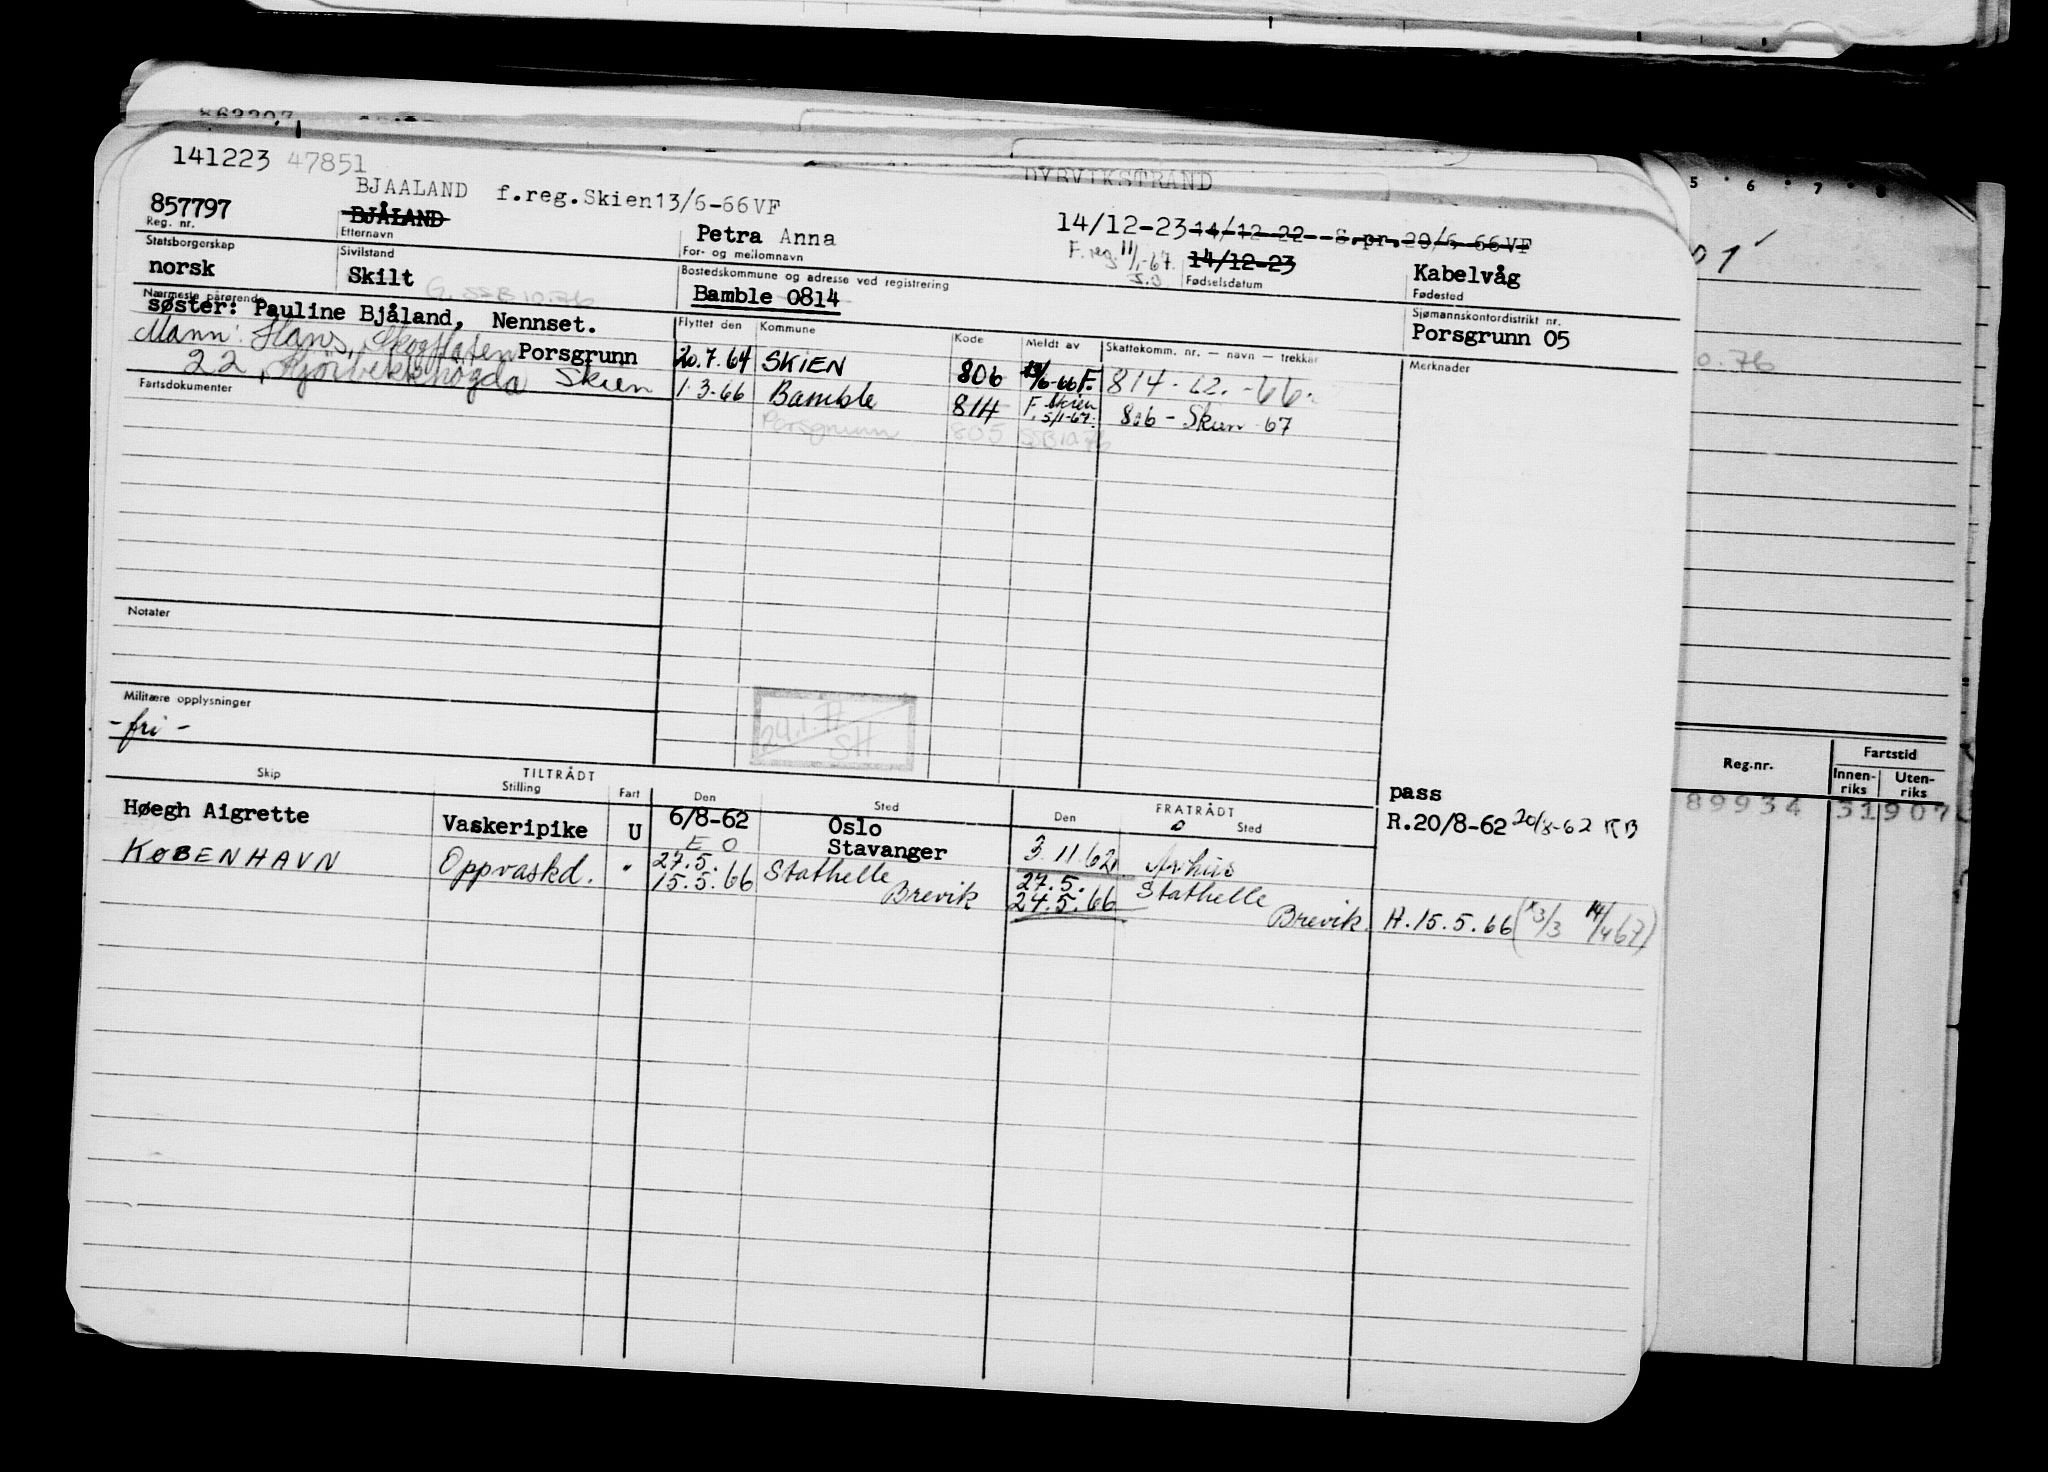 141223 47851
BJAALAND f.reg.Skien13/6-66VF
DYBVIKSTRAND
857797 BJÅLAND Petra Anna 14/12-23 14/12-22 S.pr. 20/6-66VF
Reg. nr. Etternavn For- og mellomnavn F. reg. 11/1-67. 14/12-23 Fødselsdatum Kabelvåg Fødested
Statsborgerskap Sivilstand Bostedskommune og adresse ved registrering Sjømannskontordistrikt nr.
norsk Skilt G. SSB 10.76 Bamble 0814 Porsgrunn 05
Nærmeste pårørende Flyttet den Kommune Kode Meldt av Skattekomm. nr. — navn — trekkår Merknader
søster: Pauline Bjåland, Nennset.
Porsgrunn
Mann: Hans,
22, Skien
20.7.64 SKIEN 806 13/6-66 F. 814 - 12. -66.
1.3.66 Bamble 814 F. Skien 5/1-67. 806 - Skien 67
Porsgrunn 805 SSB 10.76
Fartsdokumenter
Notater
Militære opplysninger
- fri -
24.1.77
SH
Skip TILTRÅDT FRATRÅDT
Stilling Fart Den Sted Den Sted
pass
Høegh Aigrette Vaskeripike U 6/8-62 Oslo R.20/8-62 20/8-62 RB
E O Stavanger 3.11.62 Århus
KØBENHAVN Oppvaskd. " 27.5. Stathelle 27.5. Stathelle
15.5.66 Brevik 24.5.66 Brevik. H.15.5.66 (x3/3 14/4 67)
5 . 6 . 7 . 8
0.76
Reg.nr. Fartstid
Innen-riks Uten-riks
89934 31907